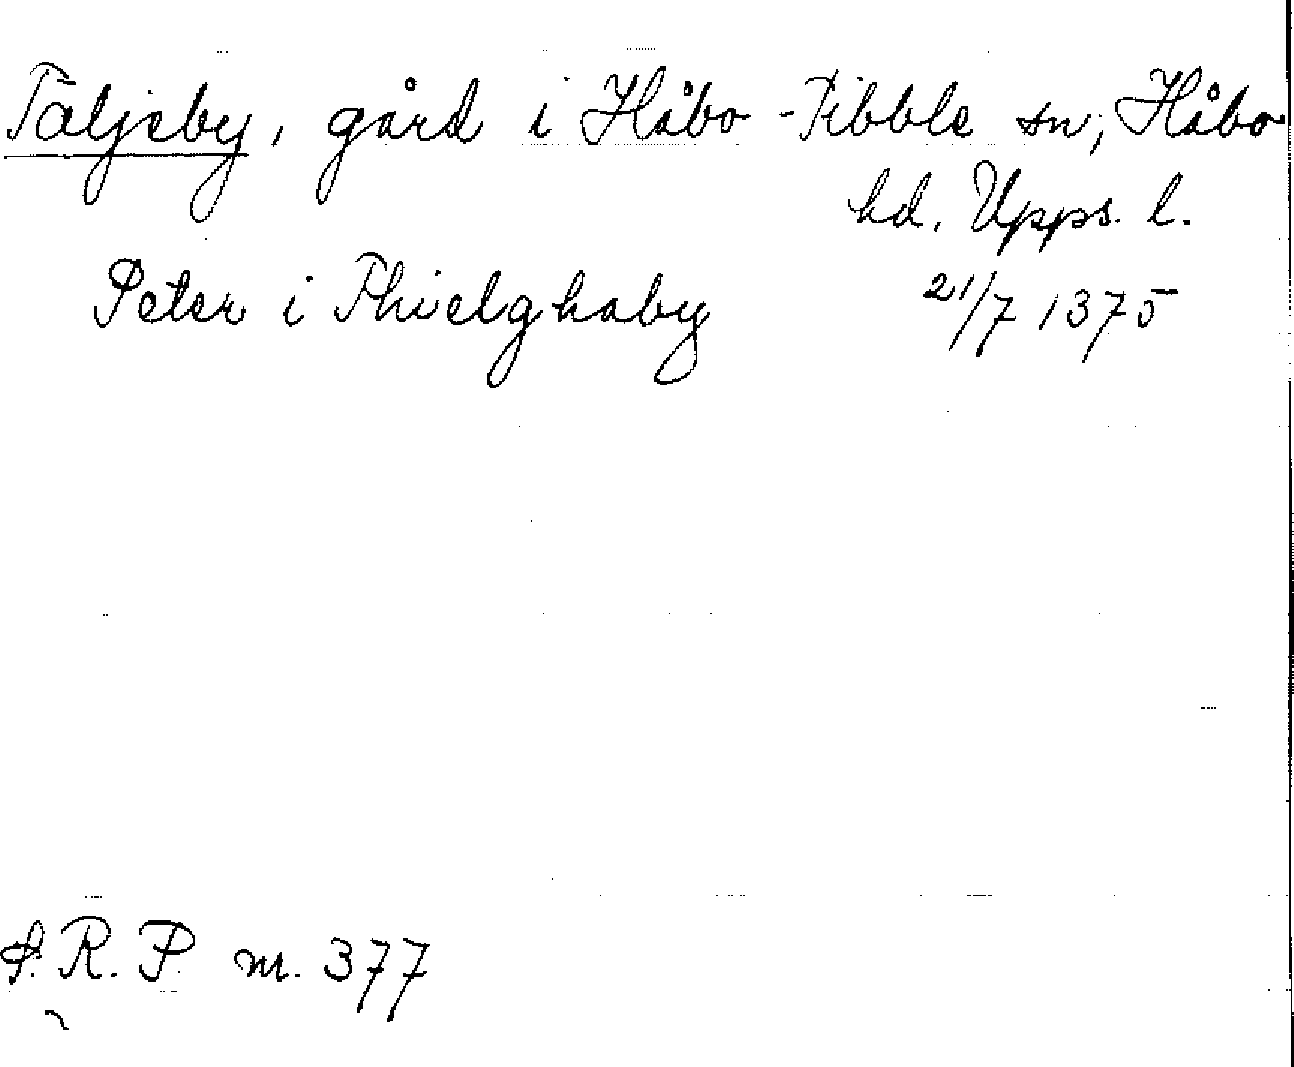 Täljeby, gård i Håbo-Tibble sn, Håbo
hd. Upps. l.
Peter i Thielghaby 21/7 1375
S.R.P. nr. 377